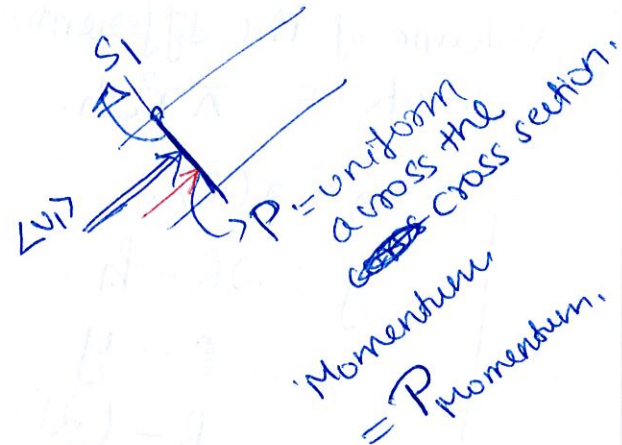 S1
<v1>
P = uniform
across the
cross section.
Momentum.
= P Momentum.